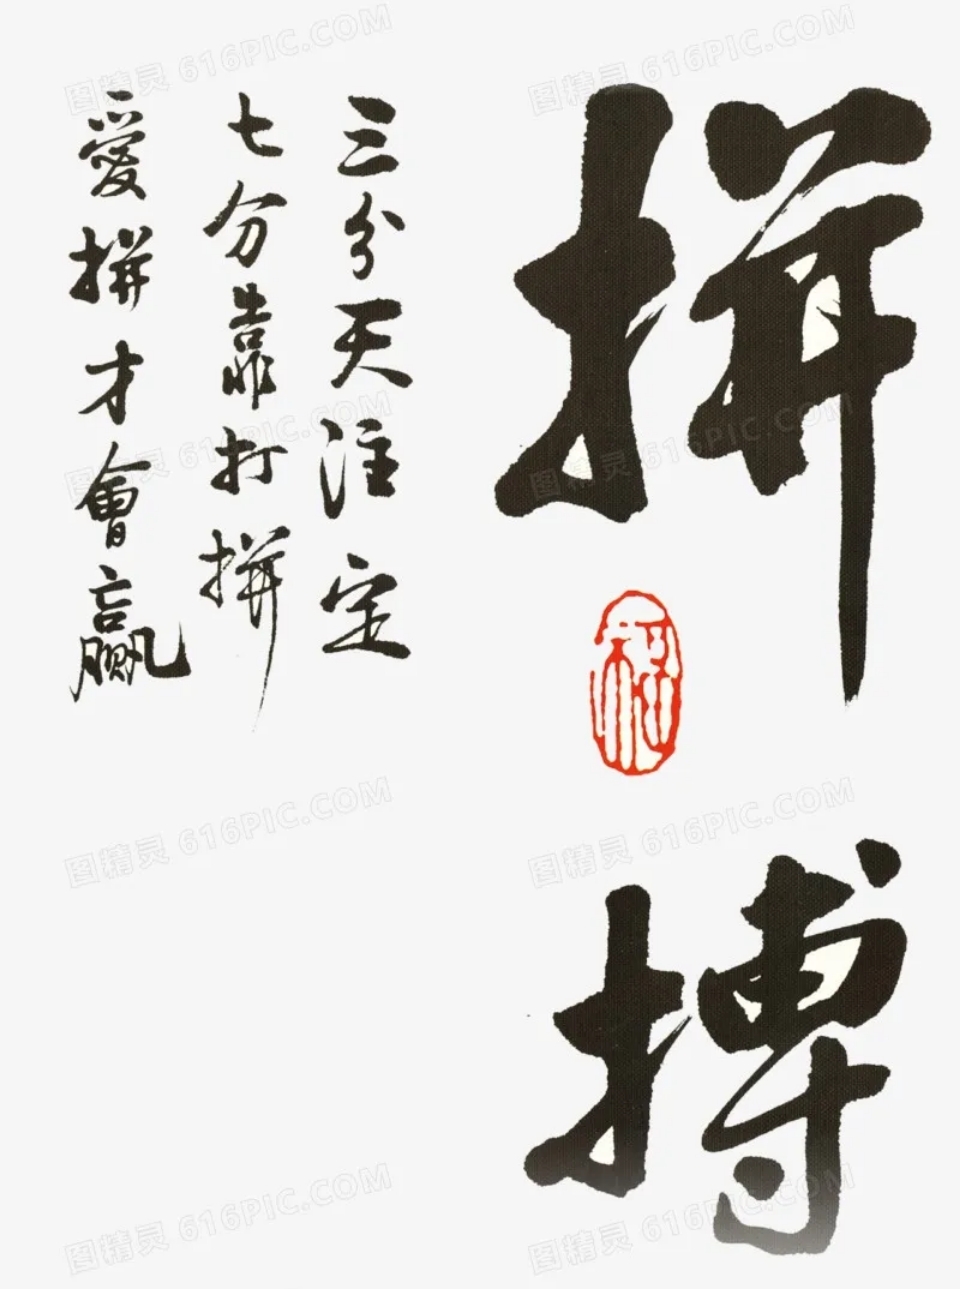 拼搏
三分天注定
七分靠打拼
愛拼才會贏
图精灵 616PIC.COM
图精灵 616PIC.COM
图精灵 616PIC.COM
图精灵 616PIC.COM
图精灵 616PIC.COM
图精灵 616PIC.COM
图精灵 616PIC.COM
图精灵 616PIC.COM